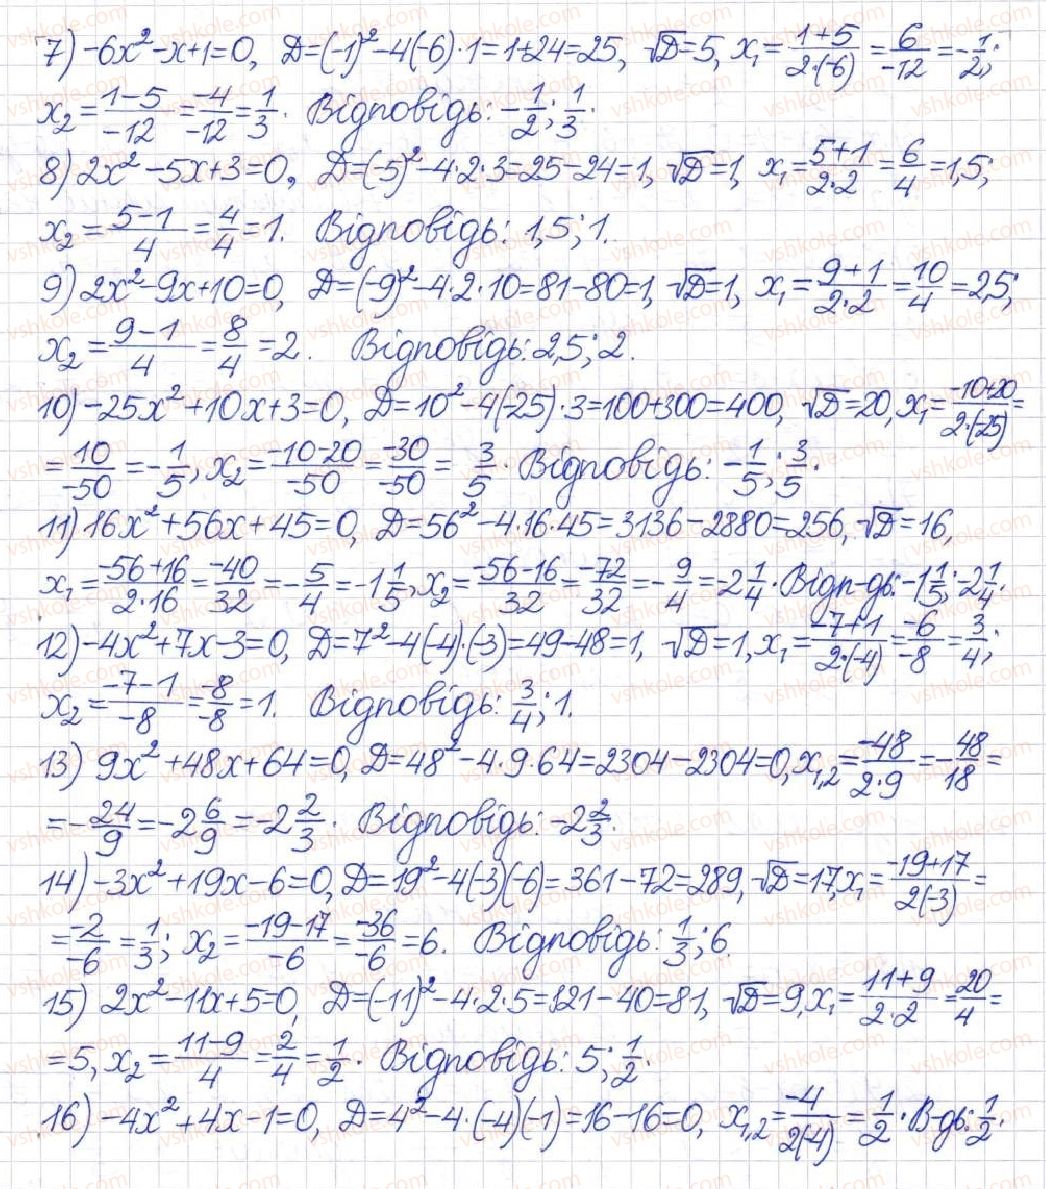 7) -6x² - x + 1 = 0, D = (-1)² - 4(-6)·1 = 1 + 24 = 25, √D = 5, x₁ = (1+5)/(2·(-6)) = 6/(-12) = -1/2;
x₂ = (1-5)/(-12) = (-4)/(-12) = 1/3. Відповідь: -1/2; 1/3.
8) 2x² - 5x + 3 = 0, D = (-5)² - 4·2·3 = 25 - 24 = 1, √D = 1, x₁ = (5+1)/(2·2) = 6/4 = 1,5;
x₂ = (5-1)/4 = 4/4 = 1. Відповідь: 1,5; 1.
9) 2x² - 9x + 10 = 0, D = (-9)² - 4·2·10 = 81 - 80 = 1, √D = 1, x₁ = (9+1)/(2·2) = 10/4 = 2,5;
x₂ = (9-1)/4 = 8/4 = 2. Відповідь: 2,5; 2.
10) -25x² + 10x + 3 = 0, D = 10² - 4(-25)·3 = 100 + 300 = 400, √D = 20, x₁ = (-10+20)/(2·(-25)) =
= 10/(-50) = -1/5, x₂ = (-10-20)/(-50) = (-30)/(-50) = 3/5. Відповідь: -1/5; 3/5.
11) 16x² + 56x + 45 = 0, D = 56² - 4·16·45 = 3136 - 2880 = 256, √D = 16,
x₁ = (-56+16)/(2·16) = (-40)/32 = -5/4 = -1 1/5, x₂ = (-56-16)/32 = (-72)/32 = -9/4 = -2 1/4. Відп-дь: -1 1/5; -2 1/4.
12) -4x² + 7x - 3 = 0, D = 7² - 4(-4)·(-3) = 49 - 48 = 1, √D = 1, x₁ = (-7+1)/(2·(-4)) = (-6)/(-8) = 3/4;
x₂ = (-7-1)/(-8) = (-8)/(-8) = 1. Відповідь: 3/4; 1.
13) 9x² + 48x + 64 = 0, D = 48² - 4·9·64 = 2304 - 2304 = 0, x₁,₂ = (-48)/(2·9) = -48/18 =
= -24/9 = -2 6/9 = -2 2/3. Відповідь: -2 2/3.
14) -3x² + 19x - 6 = 0, D = 19² - 4(-3)(-6) = 361 - 72 = 289, √D = 17, x₁ = (-19+17)/(2(-3)) =
= (-2)/(-6) = 1/3; x₂ = (-19-17)/(-6) = (-36)/(-6) = 6. Відповідь: 1/3; 6.
15) 2x² - 11x + 5 = 0, D = (-11)² - 4·2·5 = 121 - 40 = 81, √D = 9, x₁ = (11+9)/(2·2) = 20/4 =
= 5, x₂ = (11-9)/4 = 2/4 = 1/2. Відповідь: 5; 1/2.
16) -4x² + 4x - 1 = 0, D = 4² - 4·(-4)(-1) = 16 - 16 = 0, x₁,₂ = (-4)/(2(-4)) = 1/2. В-дь: 1/2.